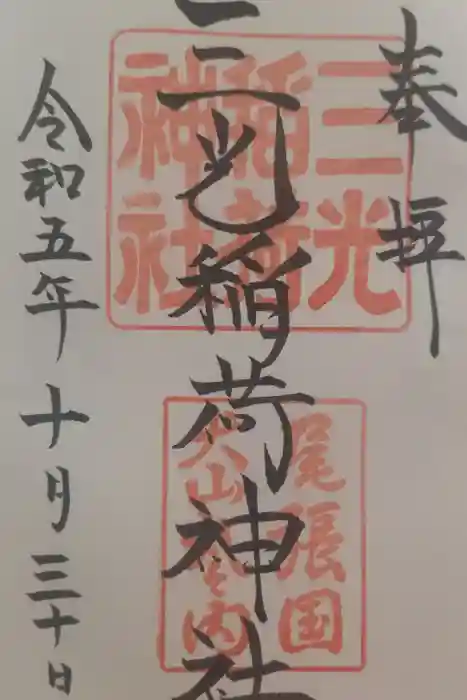 奉拝
三光稲荷神社
三光
稲荷
神社
尾張国
犬山城之内
令和五年十月三十日